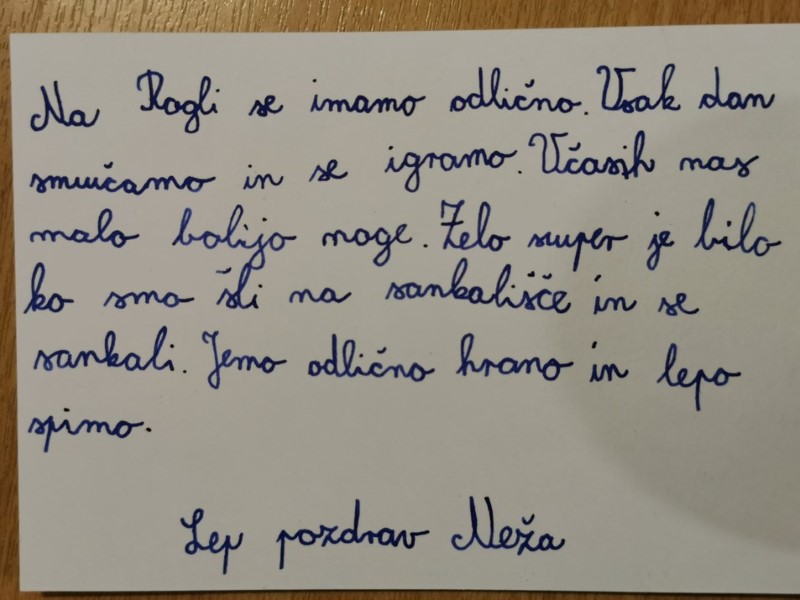 Na Rogli se imamo odlično. Vsak dan
smučamo in se igramo. Včasih nas
malo bolijo noge. Zelo super je bilo
ko smo šli na sankališče in se
sankali. Jemo odlično hrano in lepo
spimo.
Lep pozdrav Neža